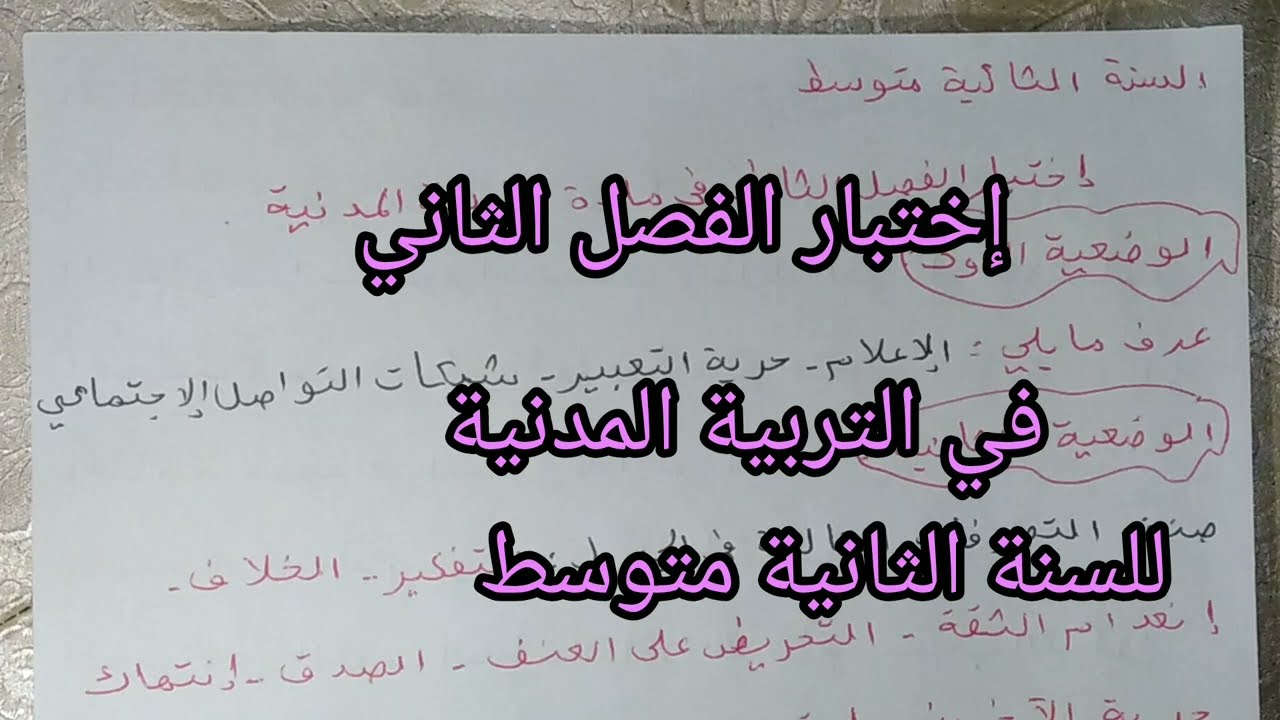 السنة الثانية متوسط
إختبار الفصل في مادة المدنية
إختبار الفصل الثاني
الوضعية
عرف ما يلي : الإعلام - حرية التعبير - شبكات التواصل الإجتماعي
في التربية المدنية
الوضعية
صنف
التفكير - الخلاف -
للسنة الثانية متوسط
إنعدام الثقة - التحريض على العنف - الصدق - إنتهاك